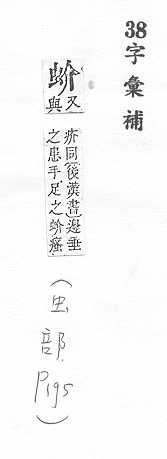 38字彙補
蚧
又與
疥同〔後漢書〕邊垂
之患手足之蚧瘙
(虫部 P195)